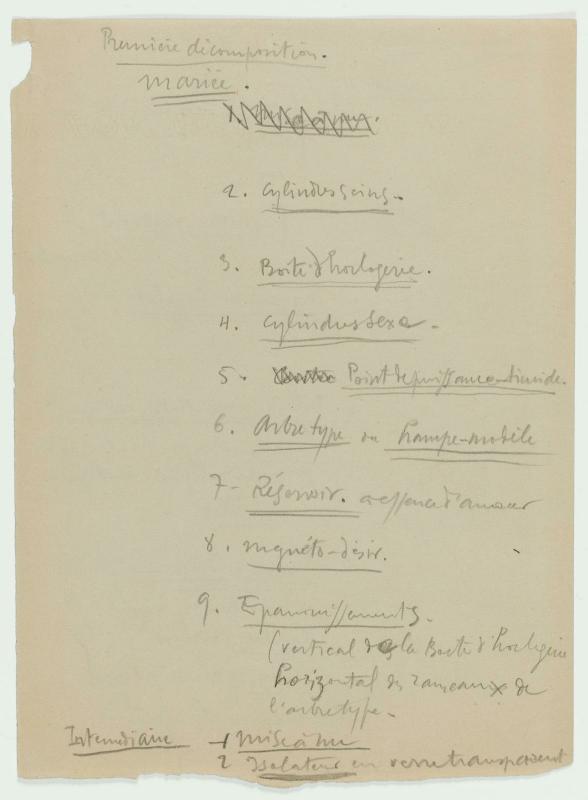 Première décomposition.
mariée.
2. Cylindres seins.
3. Boîte d'horlogerie.
4. Cylindres sexe.
5. Point de puissance timide.
6. Arbre type ou hampe-mobile
7 - Réservoir. à essence d'amour
8. magnéto-désir.
9. Epanouissements.
(vertical de la Boîte d'horlogerie
horizontal des rameaux de
l'arbre type.
Intermédiaire 1 mise à nu
2 Isolateur en verre transparent